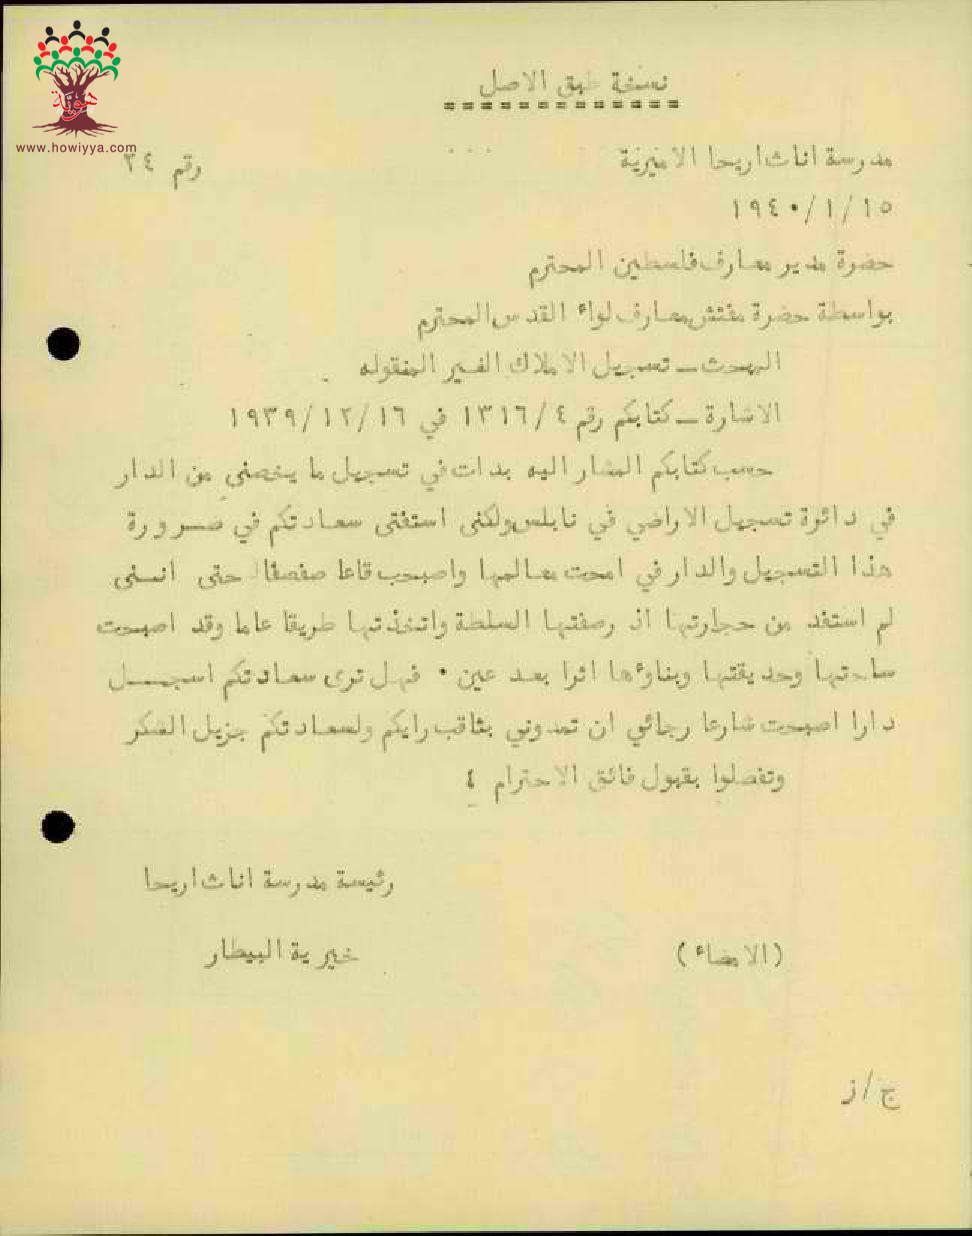 هوية
www.howiyya.com
نسخة طبق الاصل
مدرسة اناث اريحا الاميرية
رقم ٣٤
١٩٤٠/١/١٥
حضرة مدير معارف فلسطين المحترم
بواسطة حضرة مفتش معارف لواء القدس المحترم
المبحث ــ تسجيل الاملاك الغير المنقوله .
الاشارة ــ كتابكم رقم ١٣١٦/٤ في ١٩٣٩/١٢/١٦
حسب كتابكم المشار اليه بدات في تسجيل ما يخصني من الدار
في دائرة تسجيل الاراضي في نابلس ولكنى استفتى سعادتكم في ضرورة
هذا التسجيل والدار في امحت معالمها واصبحب قاعا صفصفا حتى انسنى
لم استفد من حجارتها اذ رصفتها السلطة واتخذتها طريقا عاما وقد اصبحت
ساحتها وحديقتها وبناؤها اثرا بعد عين . فهل ترى سعادتكم اسجــل
دارا اصبحت شارعا رجائي ان تمدوني بثاقب رايكم ولسعادتكم جزيل الشكر
وتفضلوا بقبول فائق الاحترام ٤
رئيسة مدرسة اناث اريحا
(الامضاء) خيرية البيطار
ج/ز